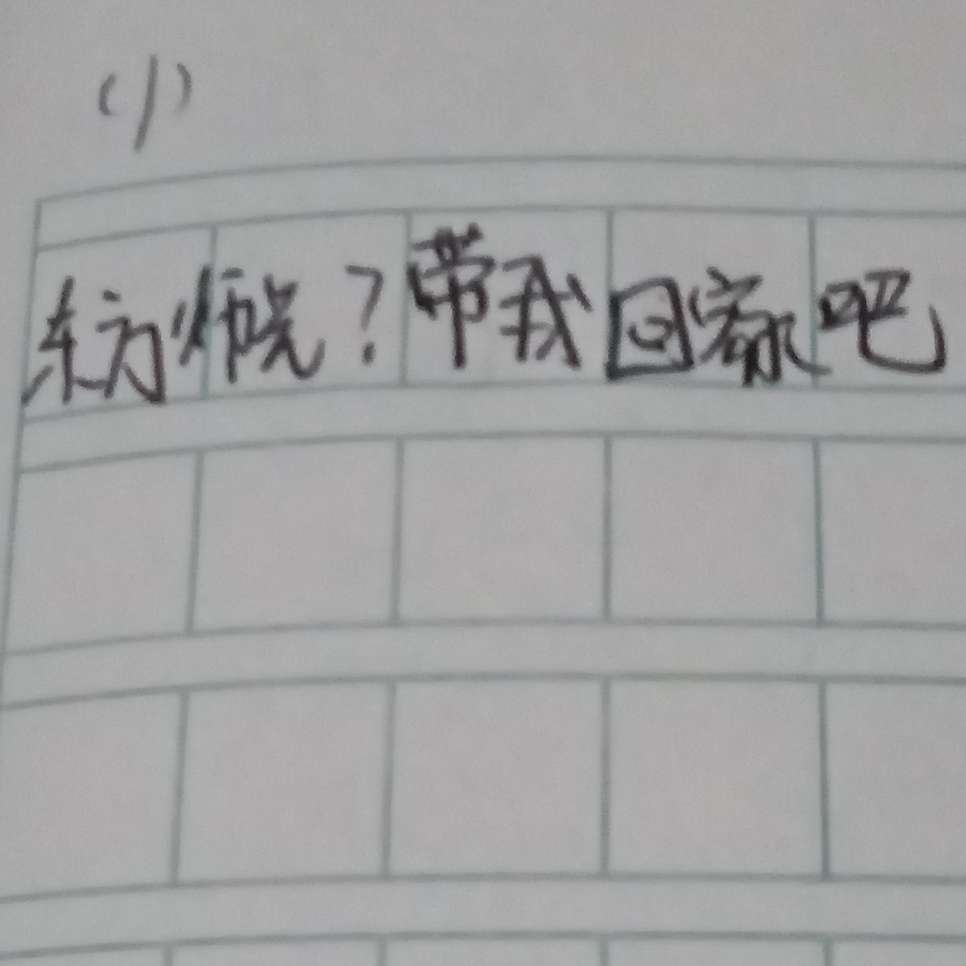 (1)
东方烦恼？带我回家吧